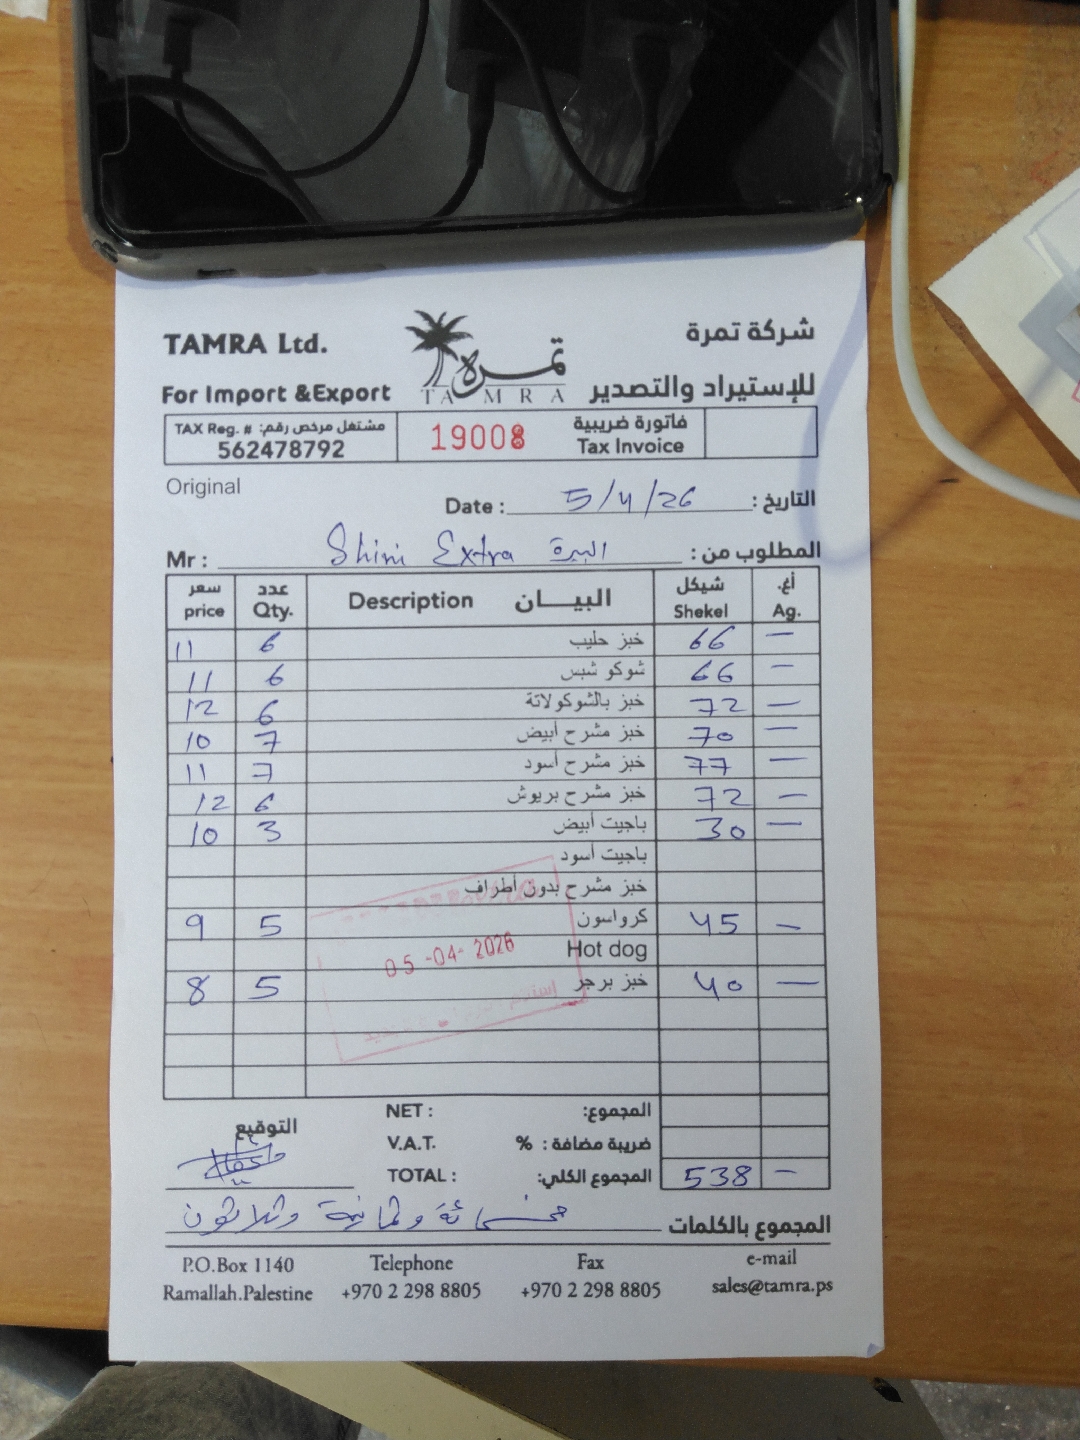 TAMRA Ltd. شركة تمرة
For Import &Export للإستيراد والتصدير
تمرة
TAMRA
TAX Reg. # مشتغل مرخص رقم:
562478792
19008
فاتورة ضريبية
Tax Invoice
Original
Date : 5/4/26 التاريخ :
Mr : Shini Extra البيرة المطلوب من :
سعر عدد البيــــان شيكل أغ.
price Qty. Description Shekel Ag.
11 6 خبز حليب 66 —
11 6 شوكو شبس 66 —
12 6 خبز بالشوكولاتة 72 —
10 7 خبز مشرح أبيض 70 —
11 7 خبز مشرح أسود 77 —
12 6 خبز مشرح بريوش 72 —
10 3 باجيت أبيض 30 —
باجيت أسود
خبز مشرح بدون أطراف
9 5 كرواسون 45 —
Hot dog
05-04-2026
8 5 خبز برجر 40 —
إستلام
NET : المجموع:
التوقيع
V.A.T. % ضريبة مضافة :
TOTAL : المجموع الكلي: 538 —
المجموع بالكلمات خمسمائة وثمانية وثلاثون
P.O.Box 1140 Telephone Fax e-mail
Ramallah.Palestine +970 2 298 8805 +970 2 298 8805 sales@tamra.ps